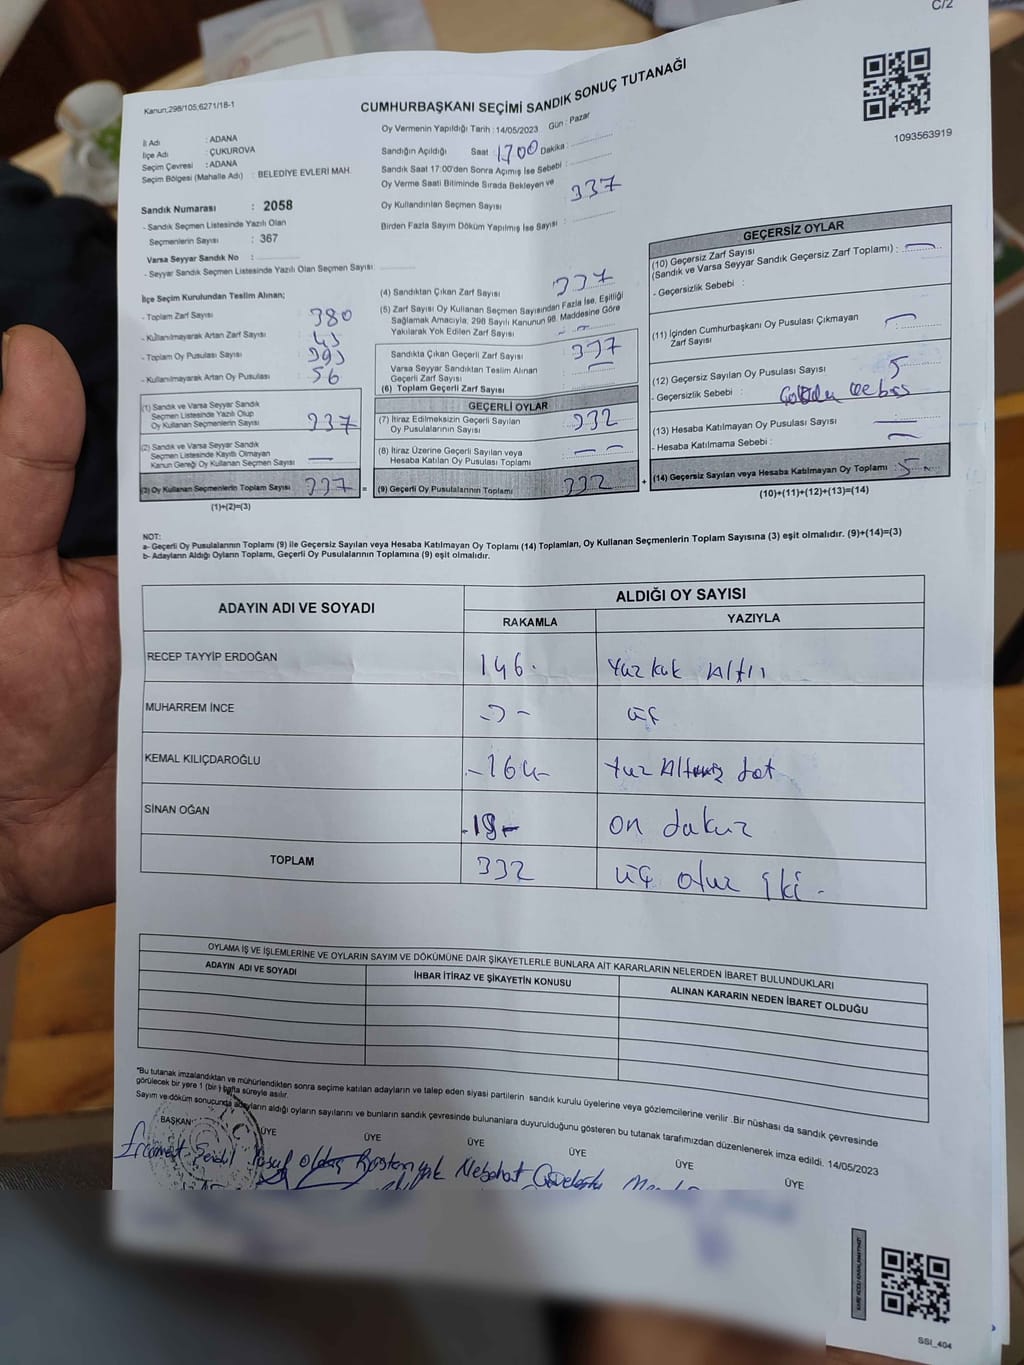 C/2
Kanun;298/105;6271/18-1
CUMHURBAŞKANI SEÇİMİ SANDIK SONUÇ TUTANAĞI
1093563919
İl Adı : ADANA
İlçe Adı : ÇUKUROVA
Seçim Çevresi : ADANA
Seçim Bölgesi (Mahalle Adı) : BELEDİYE EVLERİ MAH.
Sandık Numarası : 2058
- Sandık Seçmen Listesinde Yazılı Olan
Seçmenlerin Sayısı : 367
Varsa Seyyar Sandık No :
- Seyyar Sandık Seçmen Listesinde Yazılı Olan Seçmen Sayısı:
Oy Vermenin Yapıldığı Tarih : 14/05/2023 Gün : Pazar
Sandığın Açıldığı Saat : 1700 Dakika :
Sandık Saat 17:00'den Sonra Açımış İse Sebebi :
Oy Verme Saati Bitiminde Sırada Bekleyen ve
Oy Kullandırılan Seçmen Sayısı : 337
Birden Fazla Sayım Döküm Yapılmış İse Sayısı :
İlçe Seçim Kurulundan Teslim Alınan;
- Toplam Zarf Sayısı : 380
- Kullanılmayarak Artan Zarf Sayısı : 43
- Toplam Oy Pusulası Sayısı : 393
- Kullanılmayarak Artan Oy Pusulası : 56
(1) Sandık ve Varsa Seyyar Sandık
Seçmen Listesinde Yazılı Olup
Oy Kullanan Seçmenlerin Sayısı : 337
(2) Sandık ve Varsa Seyyar Sandık
Seçmen Listesinde Kayıtlı Olmayan
Kanun Gereği Oy Kullanan Seçmen Sayısı : —
(3) Oy Kullanan Seçmenlerin Toplam Sayısı : 337
(1)+(2)=(3)
=
(4) Sandıktan Çıkan Zarf Sayısı : 337
(5) Zarf Sayısı Oy Kullanan Seçmen Sayısından Fazla İse, Eşitliği
Sağlamak Amacıyla, 298 Sayılı Kanunun 98. Maddesine Göre
Yakılarak Yok Edilen Zarf Sayısı : - -
Sandıkta Çıkan Geçerli Zarf Sayısı : 337
Varsa Seyyar Sandıktan Teslim Alınan
Geçerli Zarf Sayısı : —
(6) Toplam Geçerli Zarf Sayısı :
GEÇERLİ OYLAR
(7) İtiraz Edilmeksizin Geçerli Sayılan
Oy Pusulalarının Sayısı : 332
(8) İtiraz Üzerine Geçerli Sayılan veya
Hesaba Katılan Oy Pusulası Toplamı : — —
(9) Geçerli Oy Pusulalarının Toplamı : 332
+
GEÇERSİZ OYLAR
(10) Geçersiz Zarf Sayısı
(Sandık ve Varsa Seyyar Sandık Geçersiz Zarf Toplamı) : —
- Geçersizlik Sebebi :
(11) İçinden Cumhurbaşkanı Oy Pusulası Çıkmayan
Zarf Sayısı : —
(12) Geçersiz Sayılan Oy Pusulası Sayısı : 5
- Geçersizlik Sebebi :
(13) Hesaba Katılmayan Oy Pusulası Sayısı : —
- Hesaba Katılmama Sebebi : —
(14) Geçersiz Sayılan veya Hesaba Katılmayan Oy Toplamı : 5
(10)+(11)+(12)+(13)=(14)
NOT:
a- Geçerli Oy Pusulalarının Toplamı (9) ile Geçersiz Sayılan veya Hesaba Katılmayan Oy Toplamı (14) Toplamları, Oy Kullanan Seçmenlerin Toplam Sayısına (3) eşit olmalıdır. (9)+(14)=(3)
b- Adayların Aldığı Oyların Toplamı, Geçerli Oy Pusulalarının Toplamına (9) eşit olmalıdır.
ADAYIN ADI VE SOYADI
ALDIĞI OY SAYISI
RAKAMLA YAZIYLA
RECEP TAYYİP ERDOĞAN 146. Yüz kırk Altı
MUHARREM İNCE -3- üç
KEMAL KILIÇDAROĞLU -164- Yüz Altmış dört
SİNAN OĞAN -19- on dokuz
TOPLAM 332 üç otuz iki -
OYLAMA İŞ VE İŞLEMLERİNE VE OYLARIN SAYIM VE DÖKÜMÜNE DAİR ŞİKAYETLERLE BUNLARA AİT KARARLARIN NELERDEN İBARET BULUNDUKLARI
ADAYIN ADI VE SOYADI İHBAR İTİRAZ VE ŞİKAYETİN KONUSU ALINAN KARARIN NEDEN İBARET OLDUĞU
"Bu tutanak imzalandıktan ve mühürlendikten sonra seçime katılan adayların ve talep eden siyasi partilerin sandık kurulu üyelerine veya gözlemcilerine verilir. Bir nüshası da sandık çevresinde
görülecek bir yere 1 (bir ) hafta süreyle asılır.
Sayım ve döküm sonucunda adayların aldığı oyların sayılarını ve bunların sandık çevresinde bulunanlara duyurulduğunu gösteren bu tutanak tarafımızdan düzenlenerek imza edildi. 14/05/2023
BAŞKAN ÜYE ÜYE ÜYE ÜYE ÜYE ÜYE
Yusuf Nebahat
SSI_404